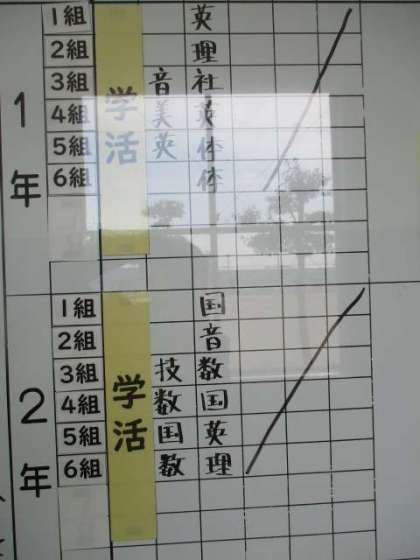 1年
学活
1組 英
2組 理
3組 音 社
4組 美 英
5組 英 体
6組 体
2年
学活
1組 国
2組 音
3組 技 数
4組 数 国
5組 国 英
6組 数 理